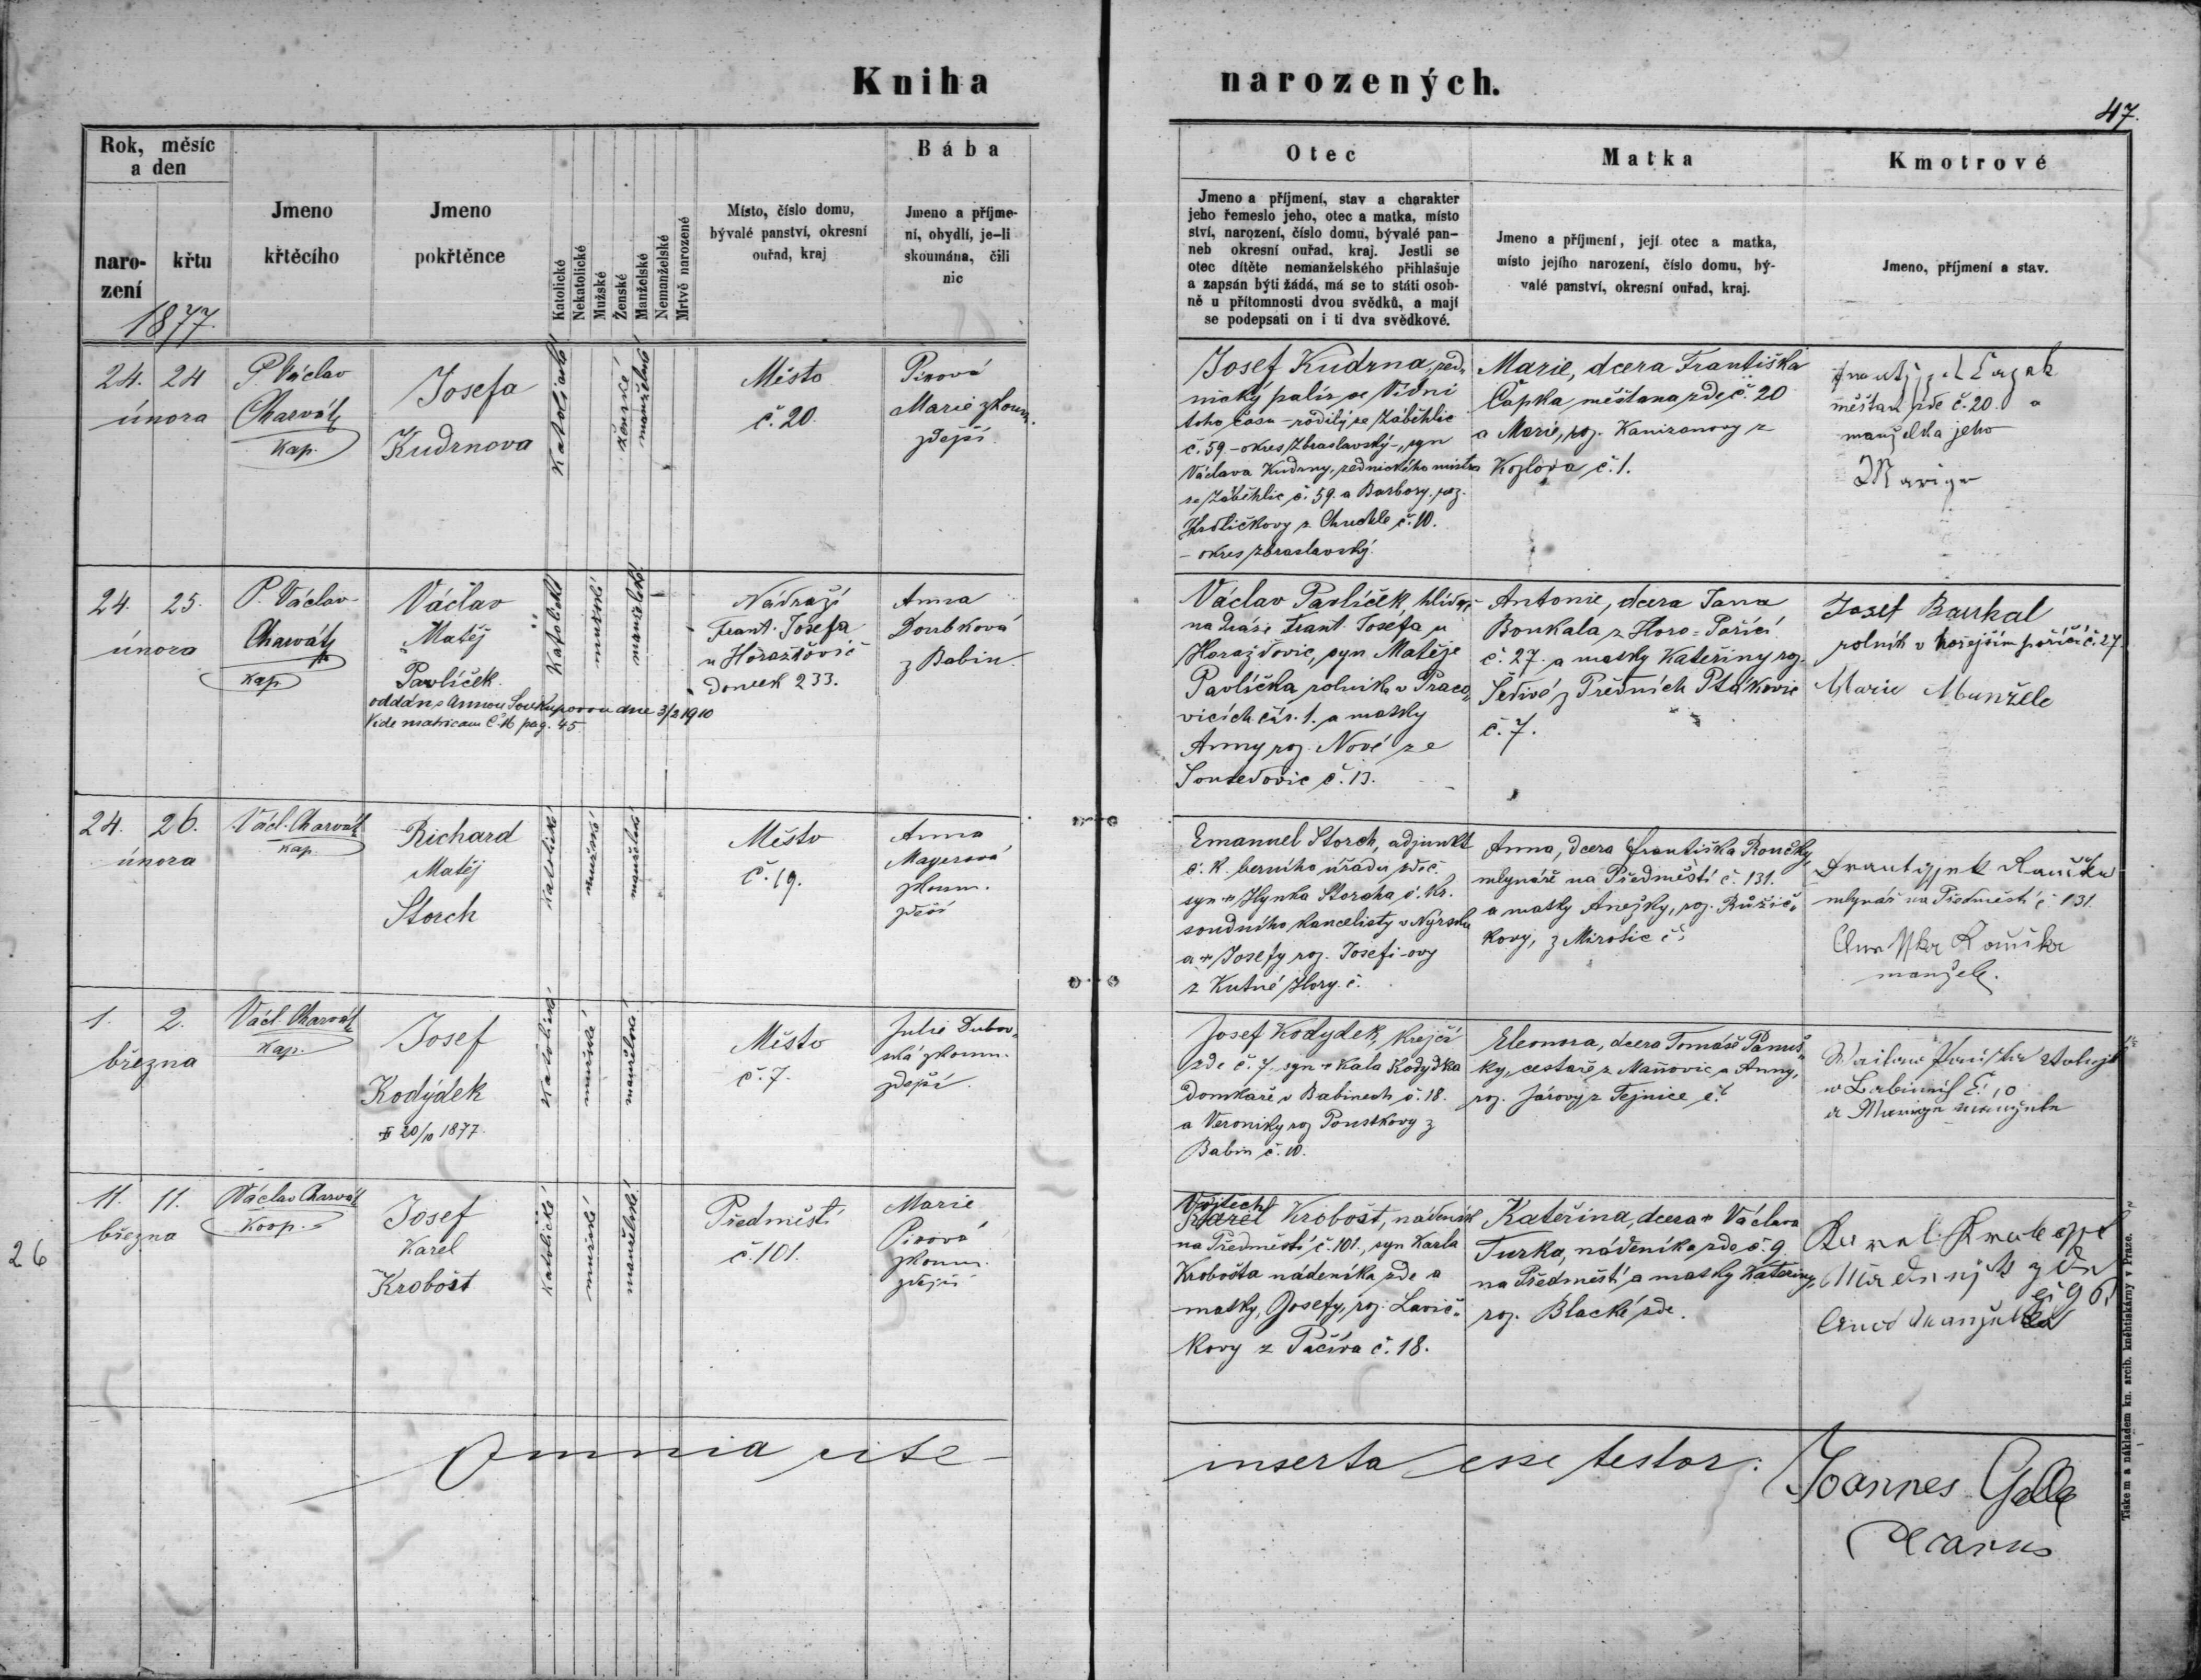 Kniha narozených.
47.
Rok, měsíc
a den
naro-
zení
křtu
1877
Jmeno
křtěcího
Jmeno
pokřtěnce
Katolické
Nekatolické
Mužské
Ženské
Manželské
Nemanželské
Mrtvě narozené
Místo, číslo domu,
bývalé panství, okresní
ouřad, kraj
Bába
Jmeno a příjme-
ní, obydlí, je-li
skoumána, čili
nic
Otec
Jmeno a příjmení, stav a charakter
jeho řemeslo jeho, otec a matka, místo
ství, narození, číslo domu, bývalé pan-
neb okresní ouřad, kraj. Jestli se
otec dítěte nemanželského přihlašuje
a zapsán býti žádá, má se to státi osob-
ně u přítomnosti dvou svědků, a mají
se podepsati on i ti dva svědkové.
Matka
Jmeno a příjmení, její otec a matka,
místo jejího narození, číslo domu, bý-
valé panství, okresní ouřad, kraj.
Kmotrové
Jmeno, příjmení a stav.
24. 24
února
P. Václav
Charvát
kap.
Josefa
Kudrnova
Katolické
ženské
manželské
Město
č. 20.
Pirová
Marie zkoum.
zdejší
Josef Kudrna, zed-
nický palír ve Vídni
toho času - rodilý ze Záběhlic
č. 59. - okres Zbraslavský -, syn
Václava Kudrny, zednického mistra
ze Záběhlic č. 59. a Barbory, roz.
Hrdličkovy z Chuchle č. 10.
- okres zbraslavský.
Marie, dcera Františka
Čapka měšťana zde č. 20
a Marie, roz. Kanizanovy z
Kozlova č. 1.
měšťan zde č. 20. a
manželka jeho
24. 25.
února
P. Václav
Charvát
kap
Václav
Matěj
Pavlíček
oddán s Annou Soukupovou dne 3/2 1910
Vide matricam č. 16 pag. 45
Katolické
mužské
manželské
Nádraží
Frant. Josefa
u Horažďovic
domek 233.
Anna
Doubková
z Babin
Václav Pavlíček, hlídač
na dráze Frant. Josefa u
Horažďovic, syn Matěje
Pavlíčka rolníka v Praco-
vicích čís. 1. a matky
Anny roz. Nové ze
Sousedovic č. 13.
Antonie, dcera Jana
Boukala z Horo-Poříčí
č. 27. a matky Kateřiny roz.
Šedivé z Předních Ptákovic
č. 7.
Josef Baukal
rolník v hořejším poříčí č. 27
Marie Manžele
24. 26.
února
Václ. Charvát
kap
Richard
Matěj
Storch
Katolické
mužské
manželské
Město
č. 19.
Anna
Mayerová
zkoum.
zdejší
Emanuel Storch, adjunkt
c. k. berního úřadu zde č.
syn + Hynka Storcha c. kr.
soudního kancelisty v Nýrsku
a + Josefy roz. Josefi-ovy
z Kutné Hory č.
Anna, dcera Františka Roučky,
mlynáře na Předměstí č. 131.
a matky Anežky, roz. Růžič-
kovy, z Mirotic č.
mlynář na Předměstí č 131.
manžele.
1. 2.
března
Václ. Charvát
kap.
Josef
Kodýdek
20/10 1877.
Katolické
mužské
manželské
Město
č. 7.
Julie Dubov-
ská zkoum.
zdejší.
Josef Kodydek, krejčí
zde č. 7. syn + Kala Kodydka
domkáře v Babinech č. 18.
a Veroniky roz Poustkovy z
Babin č. 10.
Eleonora, dcera Tomáše Panuš-
ky, cestaře z Maňovic a Anny,
roz. Járovy z Tejnice č.
11. 11.
března
Václav Charvát
Koop.
26
Josef
Karel
Krobošt
Katolické
mužské
manželské
Předměstí
č. 101.
Marie
Pirová
zkoum.
zdejší
Vojtěch
Karel Krobošt, nádeník
na Předměstí č. 101., syn Karla
Krobošta nádeníka zde a
matky, Josefy, roz. Lavič-
kovy z Pačíva č. 18.
Kateřina, dcera + Václava
Turka, nádeníka zde č. 9.
na Předměstí, a matky Kateřiny,
roz. Blacké zde.
č 96.
Omnia rite inserta esse testor:
Joannes Galla
Decanus
Tiskem a nákladem kn. arcib. kněhtiskárny v Praze.